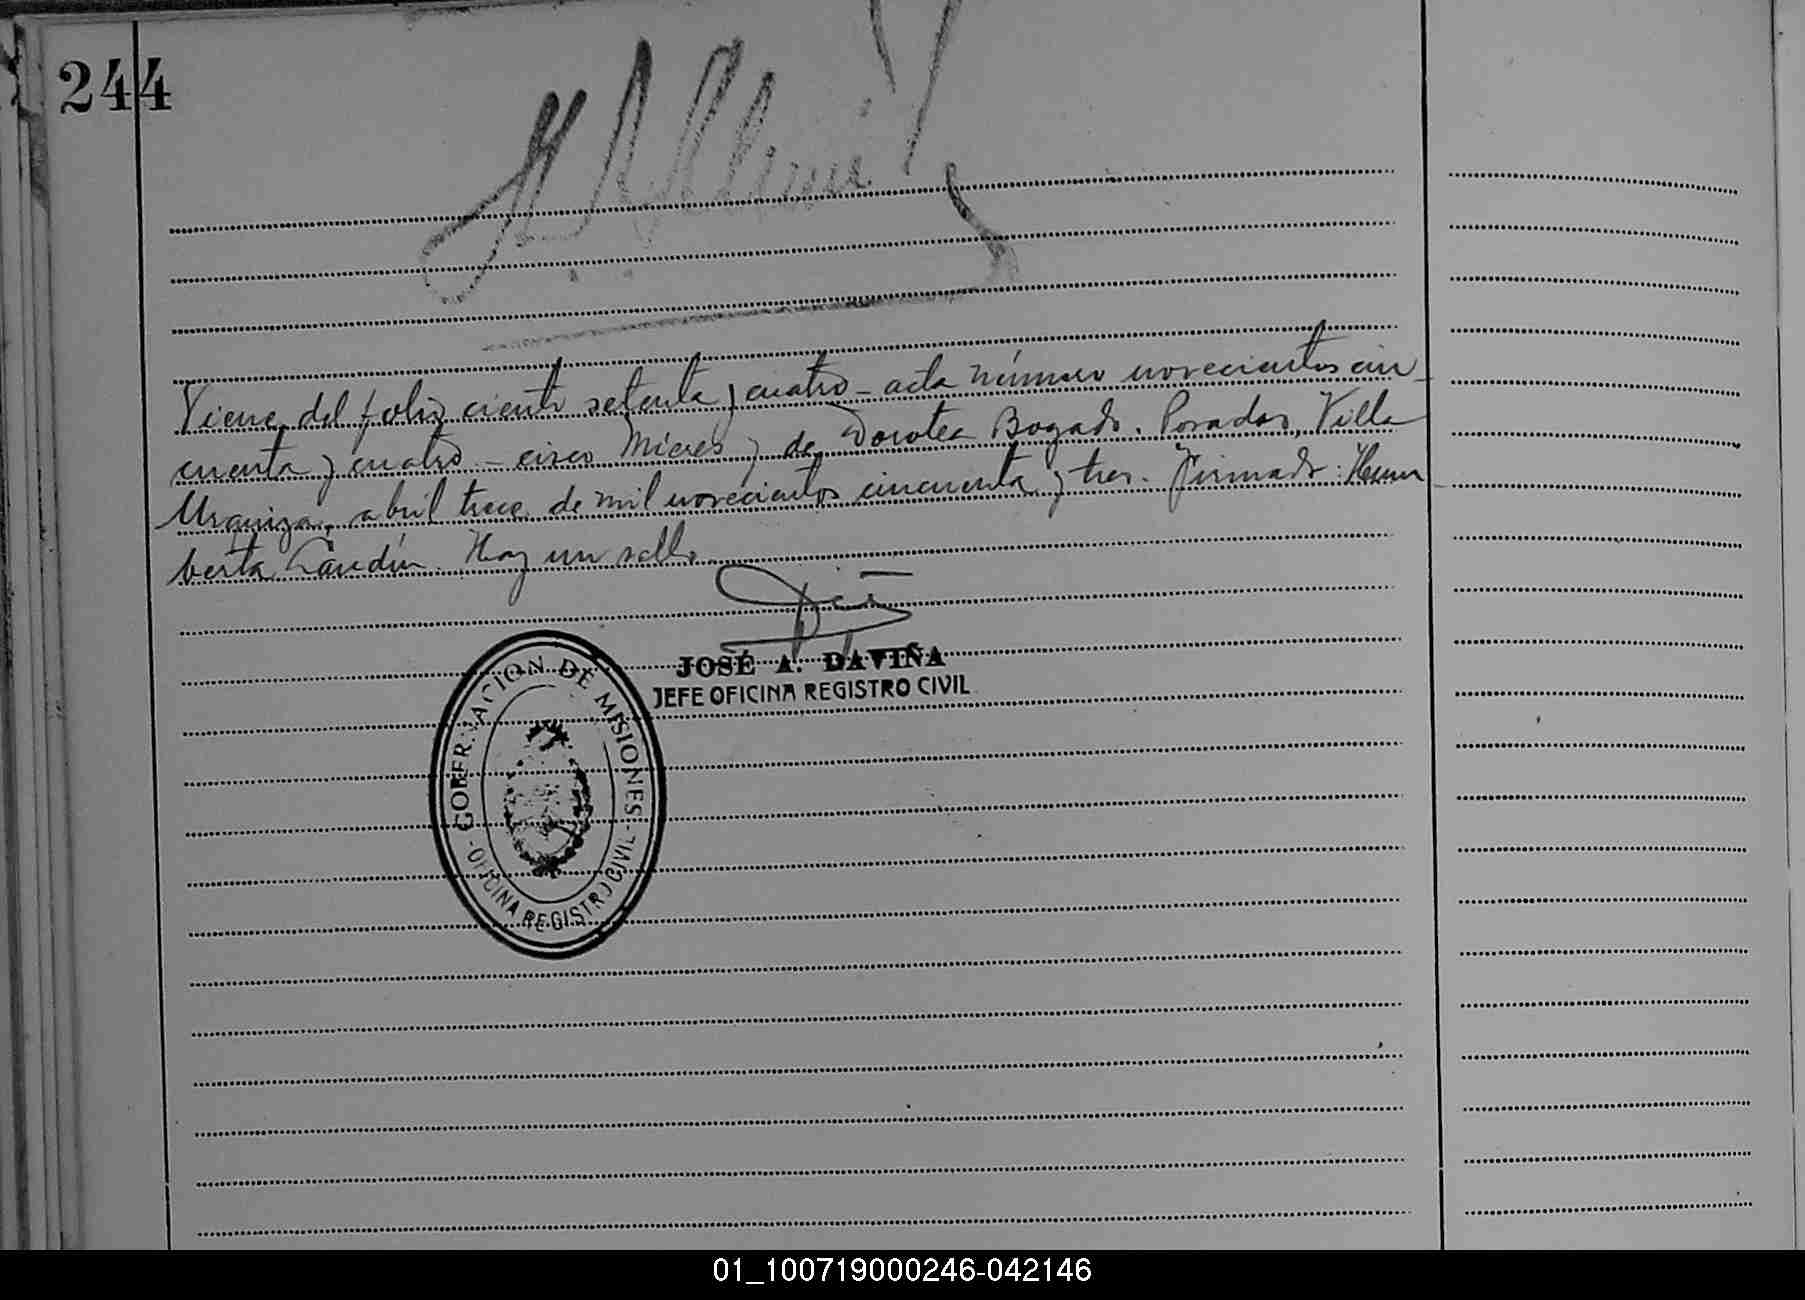 244
Viene del folio ciento setenta y cuatro - acta número novecientos cin-
cuenta y cuatro - cisco Mieres y de Dorotea Bogado. Posadas, Villa
Urquiza, abril trece de mil novecientos cincuenta y tres. Firmado: Hum-
berta Hay un sello.
JOSÉ A. DAVIÑA
JEFE OFICINA REGISTRO CIVIL
GOBERNACION DE MISIONES
- OFICINA REGISTRO CIVIL -
01_100719000246-042146